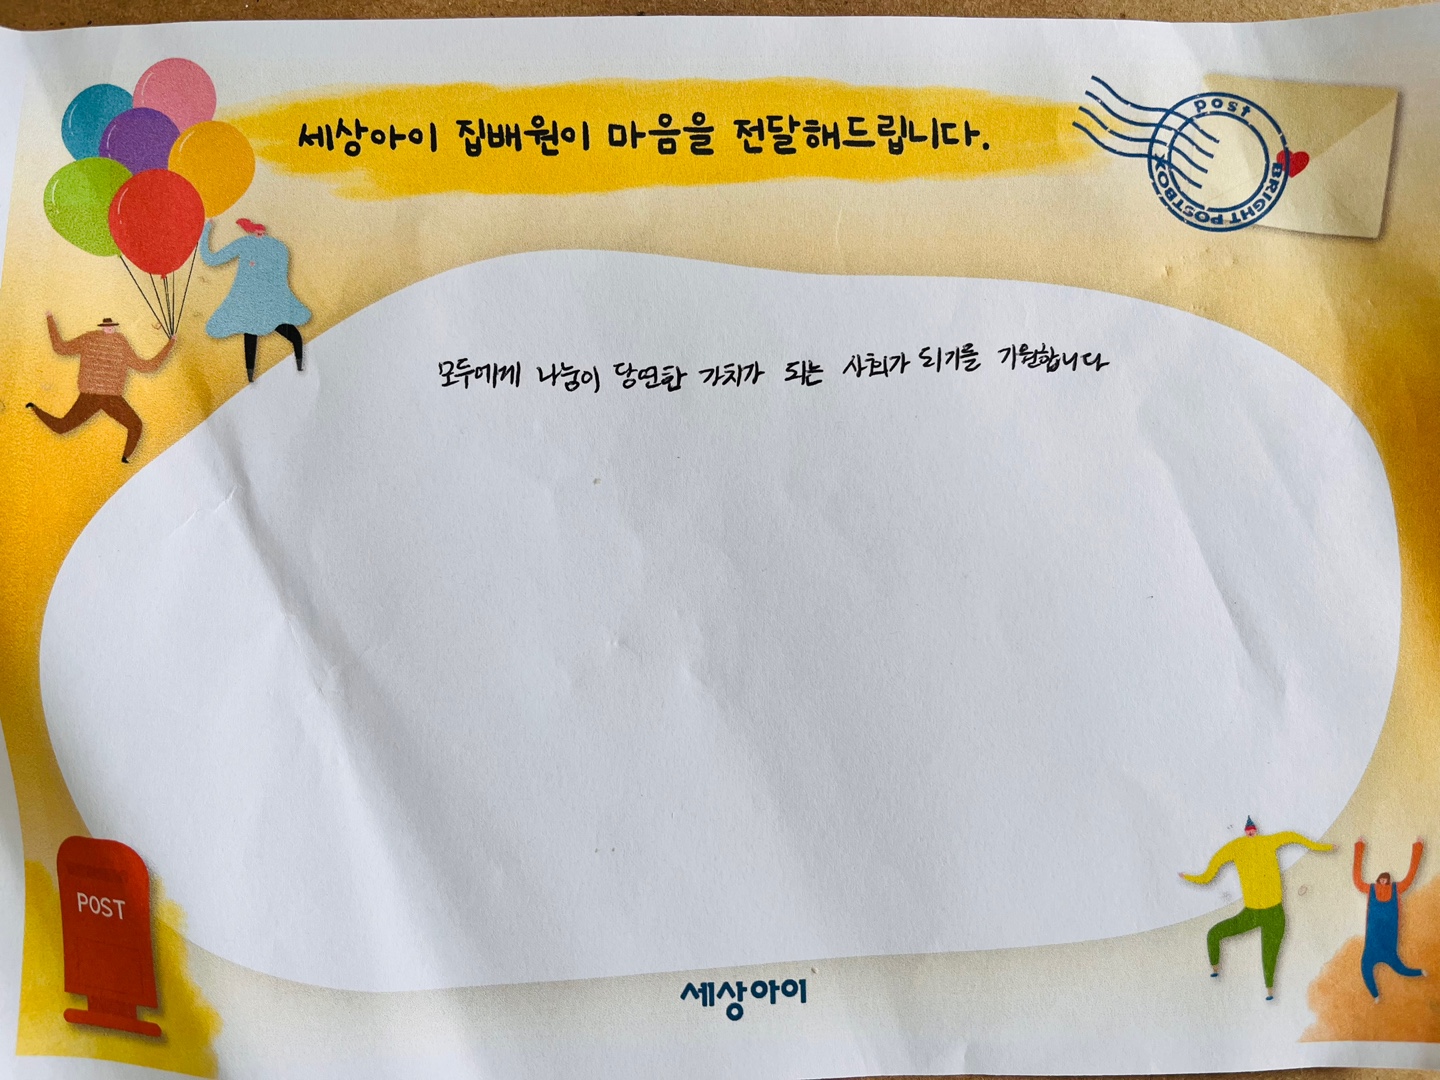 세상아이 집배원이 마음을 전달해드립니다.
post
BRIGHT POSTBOX
모두에게 나눔이 당연한 가치가 되는 사회가 되기를 기원합니다
POST
세상아이